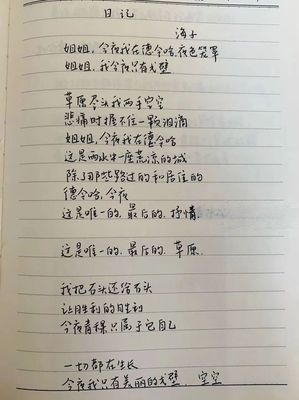 日记
海子
姐姐，今夜我在德令哈，夜色笼罩
姐姐，我今夜只有戈壁
草原尽头我两手空空
悲痛时握不住一颗泪滴
姐姐，今夜我在德令哈
这是雨水中一座荒凉的城
除了那些路过的和居住的
德令哈，今夜
这是唯一的，最后的，抒情。
这是唯一的，最后的，草原。
我把石头还给石头
让胜利的胜利
今夜青稞只属于它自己
一切都在生长
今夜我只有美丽的戈壁，空空